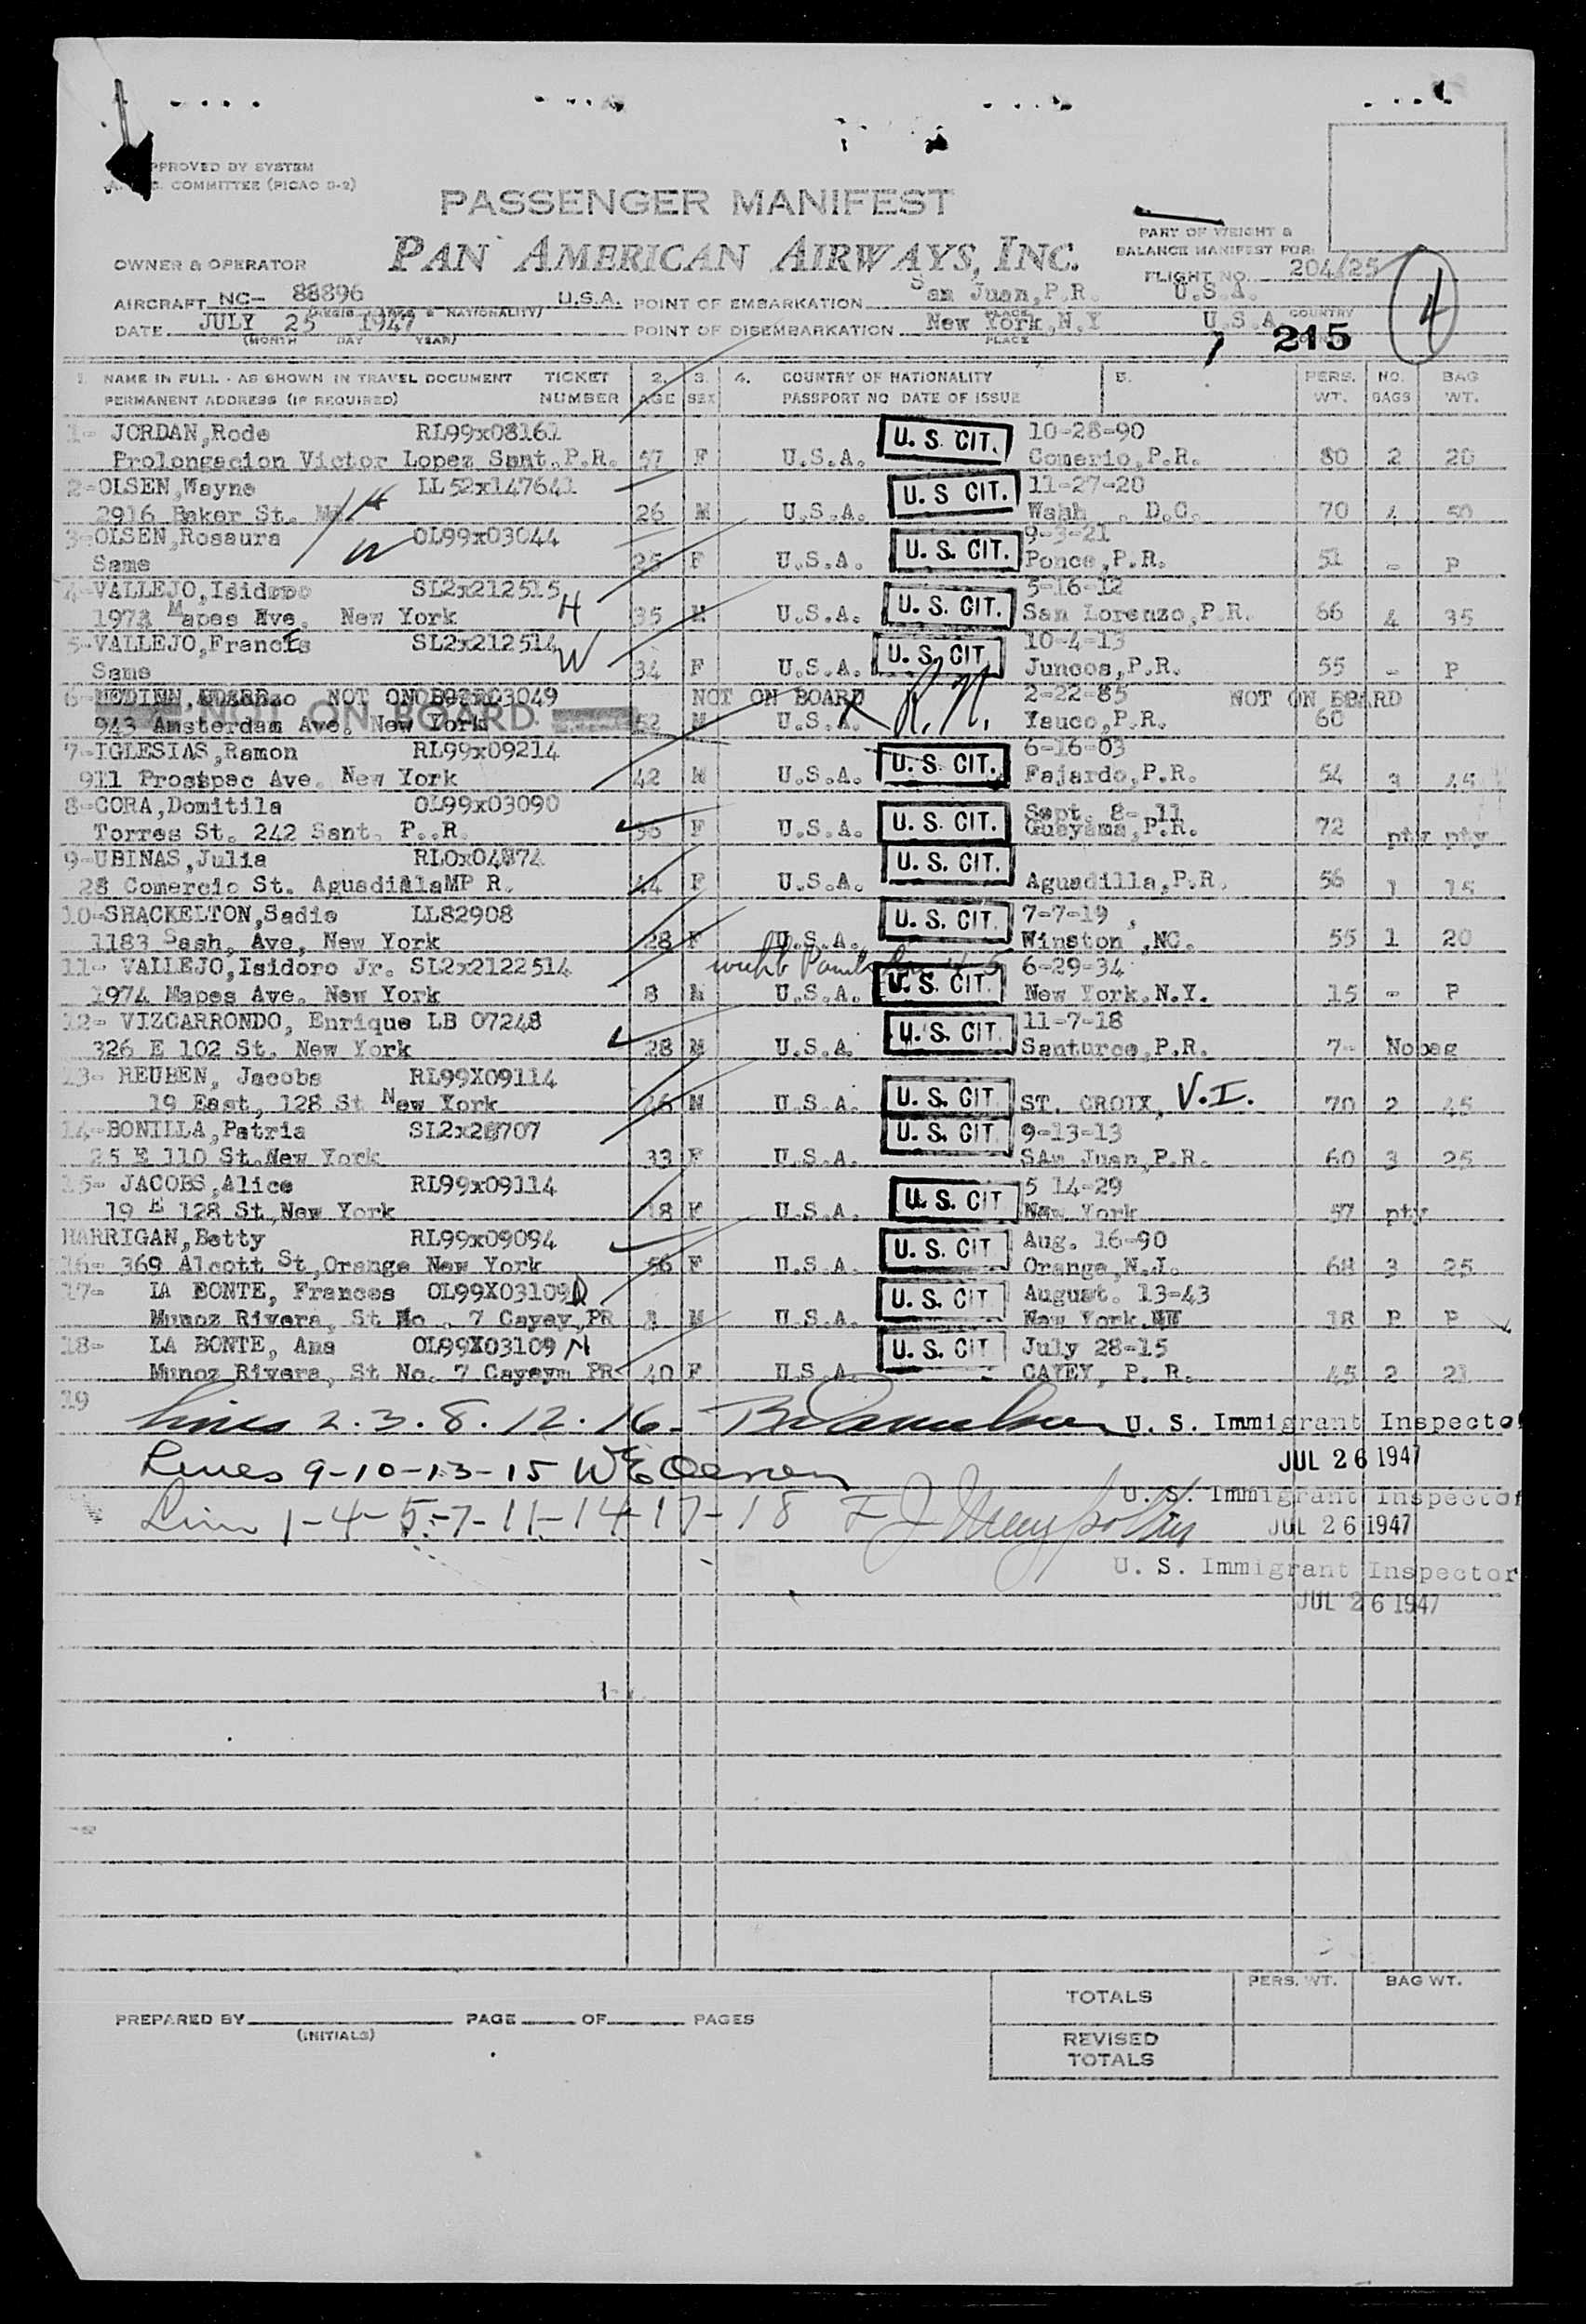 APPROVED BY SYSTEM
COMMITTEE (PICAO D-2)
PASSENGER MANIFEST
PAN AMERICAN AIRWAYS, INC.
PART OF WEIGHT &
BALANCE MANIFEST FOR:
OWNER & OPERATOR
FLIGHT NO. 204/25
4
AIRCRAFT NC- 88896 U.S.A. POINT OF EMBARKATION San Juan, P.R. U.S.A.
DATE JULY 25 1947 POINT OF DISEMBARKATION New York, N.Y U.S.A. COUNTRY
(MONTH DAY YEAR) PLACE
215
1. NAME IN FULL - AS SHOWN IN TRAVEL DOCUMENT TICKET 2. 3. 4. COUNTRY OF NATIONALITY 5. PERS. NO. BAG
PERMANENT ADDRESS (IF REQUIRED) NUMBER AGE SEX PASSPORT NO DATE OF ISSUE WT. BAGS WT.
1- JORDAN, Rode RL99x08161 U. S. CIT. 10-28-90
Prolongacion Victor Lopez Sant. P.R. 57 F U.S.A. Comerio, P.R. 80 2 20
2-OLSEN, Wayne LL52x147641 U. S CIT. 11-27-20
2916 Baker St. H 26 M U.S.A. Wahh . D.C. 70 4 50
3-OLSEN, Rosaura W OL99x03044 U. S. CIT. 9-3-21
Same 25 F U.S.A. Ponce, P.R. 51 - P
4-VALLEJO, Isidoro SL2x212515 H U. S. CIT. 5-16-12
1974 Mapes Ave, New York 35 M U.S.A. San Lorenzo, P.R. 66 4 35
5-VALLEJO, Frances SL2x212514 W U. S. CIT 10-4-13
Same 34 F U.S.A. Juncos, P.R. 55 - P
6- NOT ON BOARD 03049 NOT ON BOARD 2-22-85 NOT ON BOARD
943 Amsterdam Ave. New York ON BOARD 62 M U.S.A. X Yauco, P.R. 60
7-IGLESIAS, Ramon RL99x09214 U. S. CIT. 6-16-03
911 Prospec Ave. New York 42 M U.S.A. Fajardo, P.R. 54 3 45
8-CORA, Domitila OL99x03090 U. S. CIT. Sept. 8- 11
Torres St. 242 Sant. P..R. 36 F U.S.A. Guayama, P.R. 72 pty pty
9-UBINAS, Julia U. S. CIT.
28 Comercio St. 44 F U.S.A. Aguadilla, P.R. 56 1 15
10-SHACKELTON, Sadie LL82908 U. S. CIT. 7-7-19
1183 Sash, Ave, New York 28 F U.S.A. Winston, NC. 55 1 20
11- VALLEJO, Isidoro Jr. SL2x2122514 U. S. CIT. 6-29-34
1974 Mapes Ave. New York 8 M U.S.A. New York, N.Y. 15 - P
12- VIZCARRONDO, Enrique LB 07248 U. S. CIT. 11-7-18
326 E 102 St. New York 28 M U.S.A. Santurce, P.R. 7- Nobag
13- REUBEN, Jacobs RL99X09114 U. S. CIT
19 East, 128 St New York 26 M U.S.A. ST. CROIX, V.I. 70 2 45
14-BONILLA, Patria U. S. CIT. 9-13-13
25 E 110 St. New York 33 F U.S.A. SAn Juan, P.R. 60 3 25
15- JACOBS, Alice RL99x09114 U. S. CIT 5 14-29
19 E 128 St, New York 18 F U.S.A. New York 57 pty
HARRIGAN, Betty RL99x09094 U. S. CIT Aug. 16-90
16- 369 Alcott St, Orange New York 56 F U.S.A. Orange, N.J. 68 3 25
17- LA BONTE, Frances OL99X03109 U. S. CIT August. 13-43
Munoz Rivera, St No . 7 Cayey, PR M U.S.A. New York. 18 P P
18- LA BONTE, Ana OL99X03109 U. S. CIT July 28-15
Munoz Rivera, St No. 7 Cayeym PR 40 F U.S.A. CAYEY, P. R. 45 2 21
19
Lines 2.3.8.12.16- U. S. Immigrant Inspector
Lines 9-10-13-15 JUL 26 1947
U. S. Immigrant Inspector
Lines 1-4-5-7-11-14-17-18 JUL 26 1947
U. S. Immigrant Inspector
JUL 26 1947
TOTALS PERS. WT. BAG WT.
PREPARED BY PAGE OF PAGES
(INITIALS)
REVISED
TOTALS